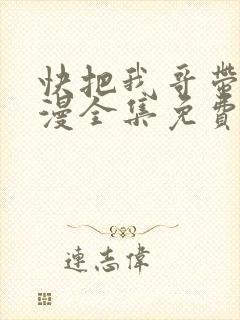 快把我哥帶
漫全集免費
連志偉